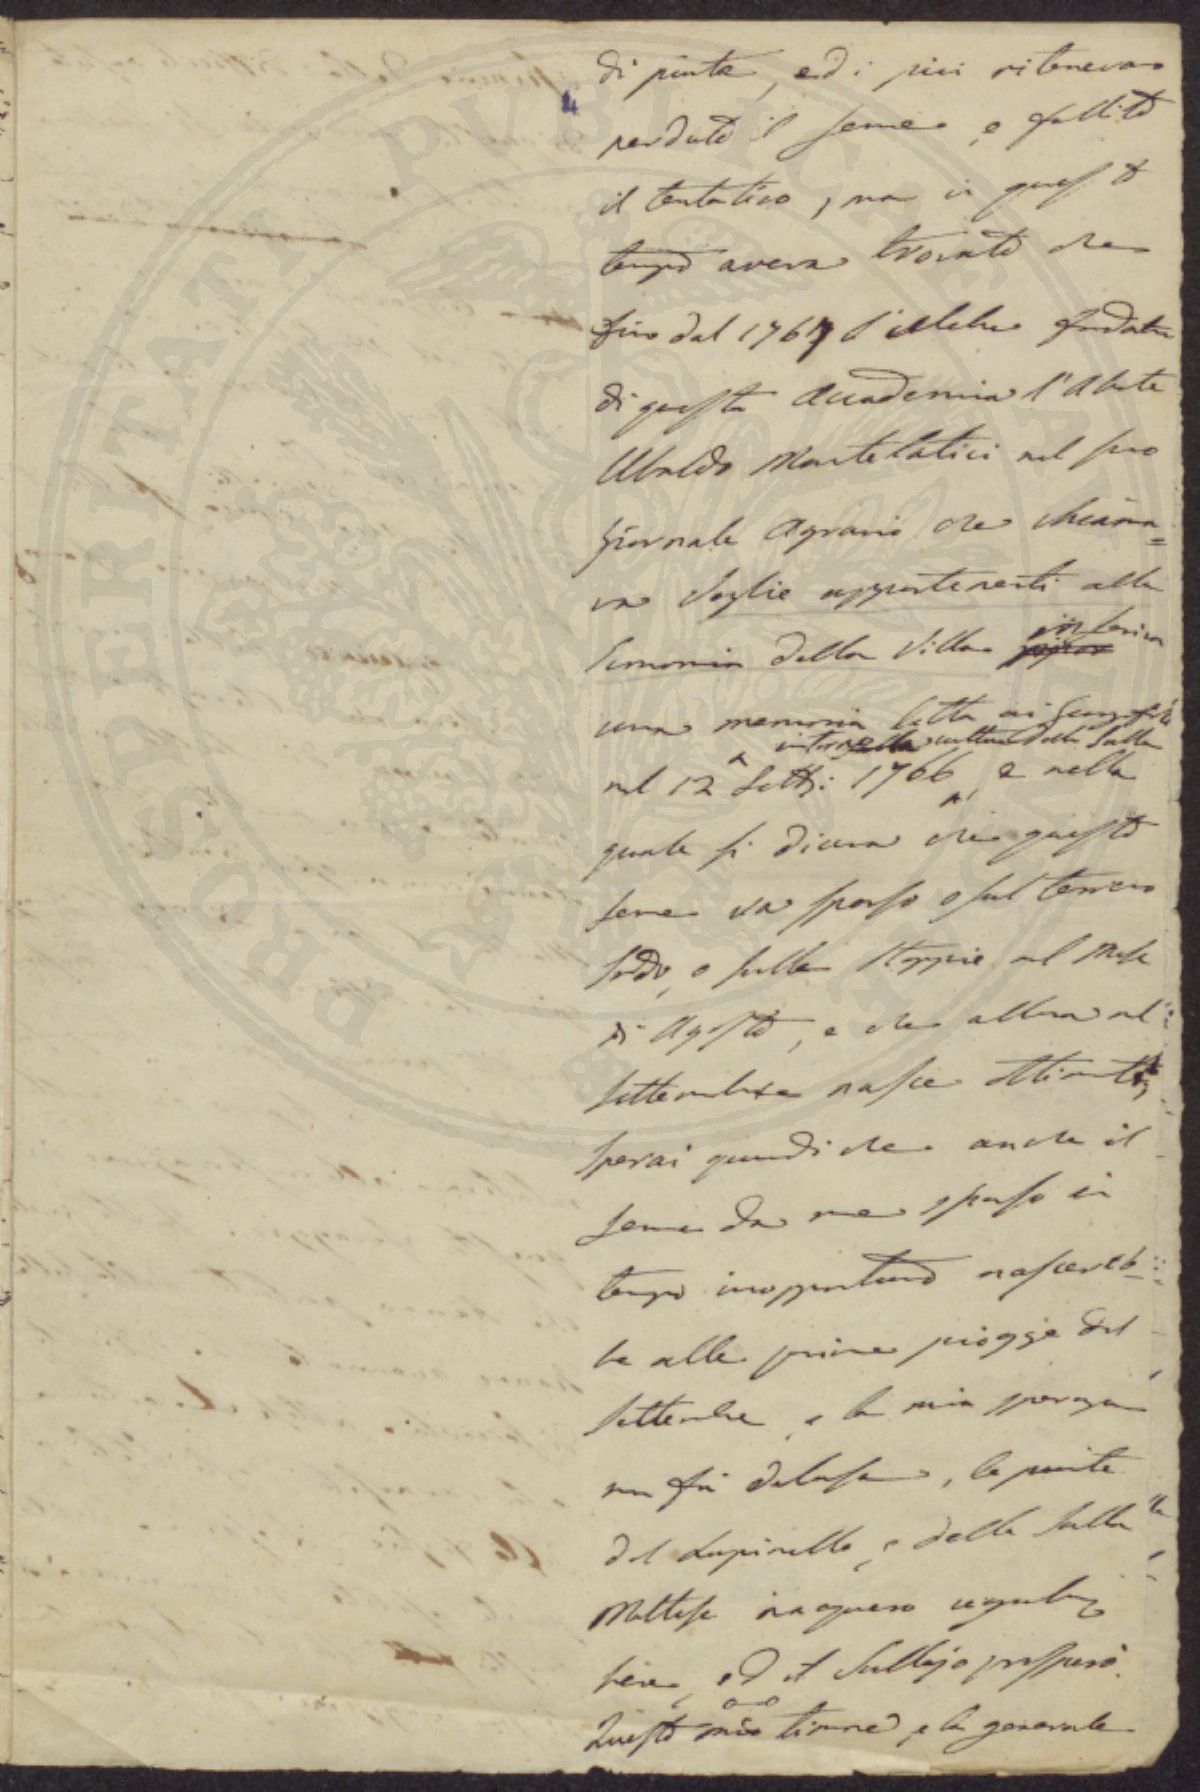 di piante, ed i più ritenevano
perduto il seme, e fallito
il tentativo, ma in questo
tempo aveva trovato che
fino dal 1767 l'celebre fondator
di questa Accademia l'Abate
Ubaldo Montelatici nel suo
giornale Agrario che chiama=
va foglie appartenenti alla
Economia della Villa inseriva
una memoria letta ai Georgofili
intorno alla cultura della Sulla
nel 12 Sett: 1766, e nella
quale si diceva che questo
seme va sparso o sul terreno
sodo, o sulle stoppie nel Mese
di Agosto, e che allora nel
Settembre nasce ottimam
sperai quindi che anche il
seme da me sparso in
tempo inopportuno nascereb-
be alle prime piogge del
Settembre, e la mia speranza
non fu delusa, le piante
del Lupinello, e della Sulla
Maltese nacquero
bene, ed il Sullajo prosperò.
Questo mio timore, e la generale
4
PROSPERITATI PUBLICAE AUGENDAE